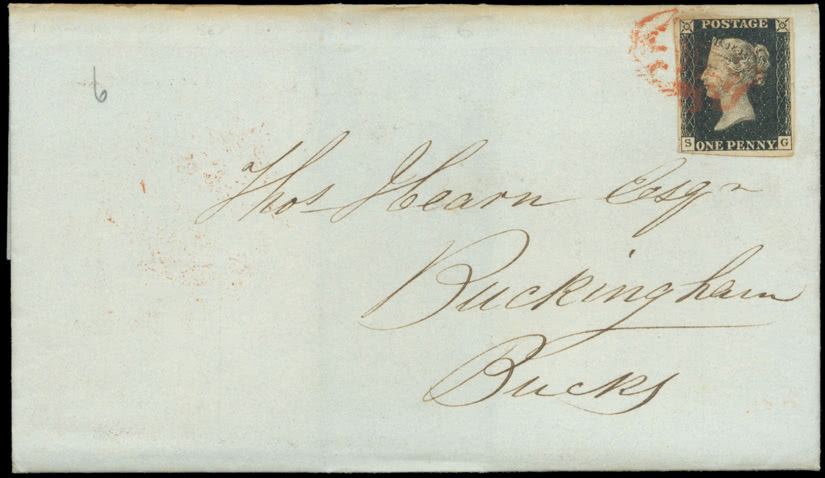 POSTAGE
S ONE PENNY G
6
Thos Hearn Esqr
Buckingham
Bucks